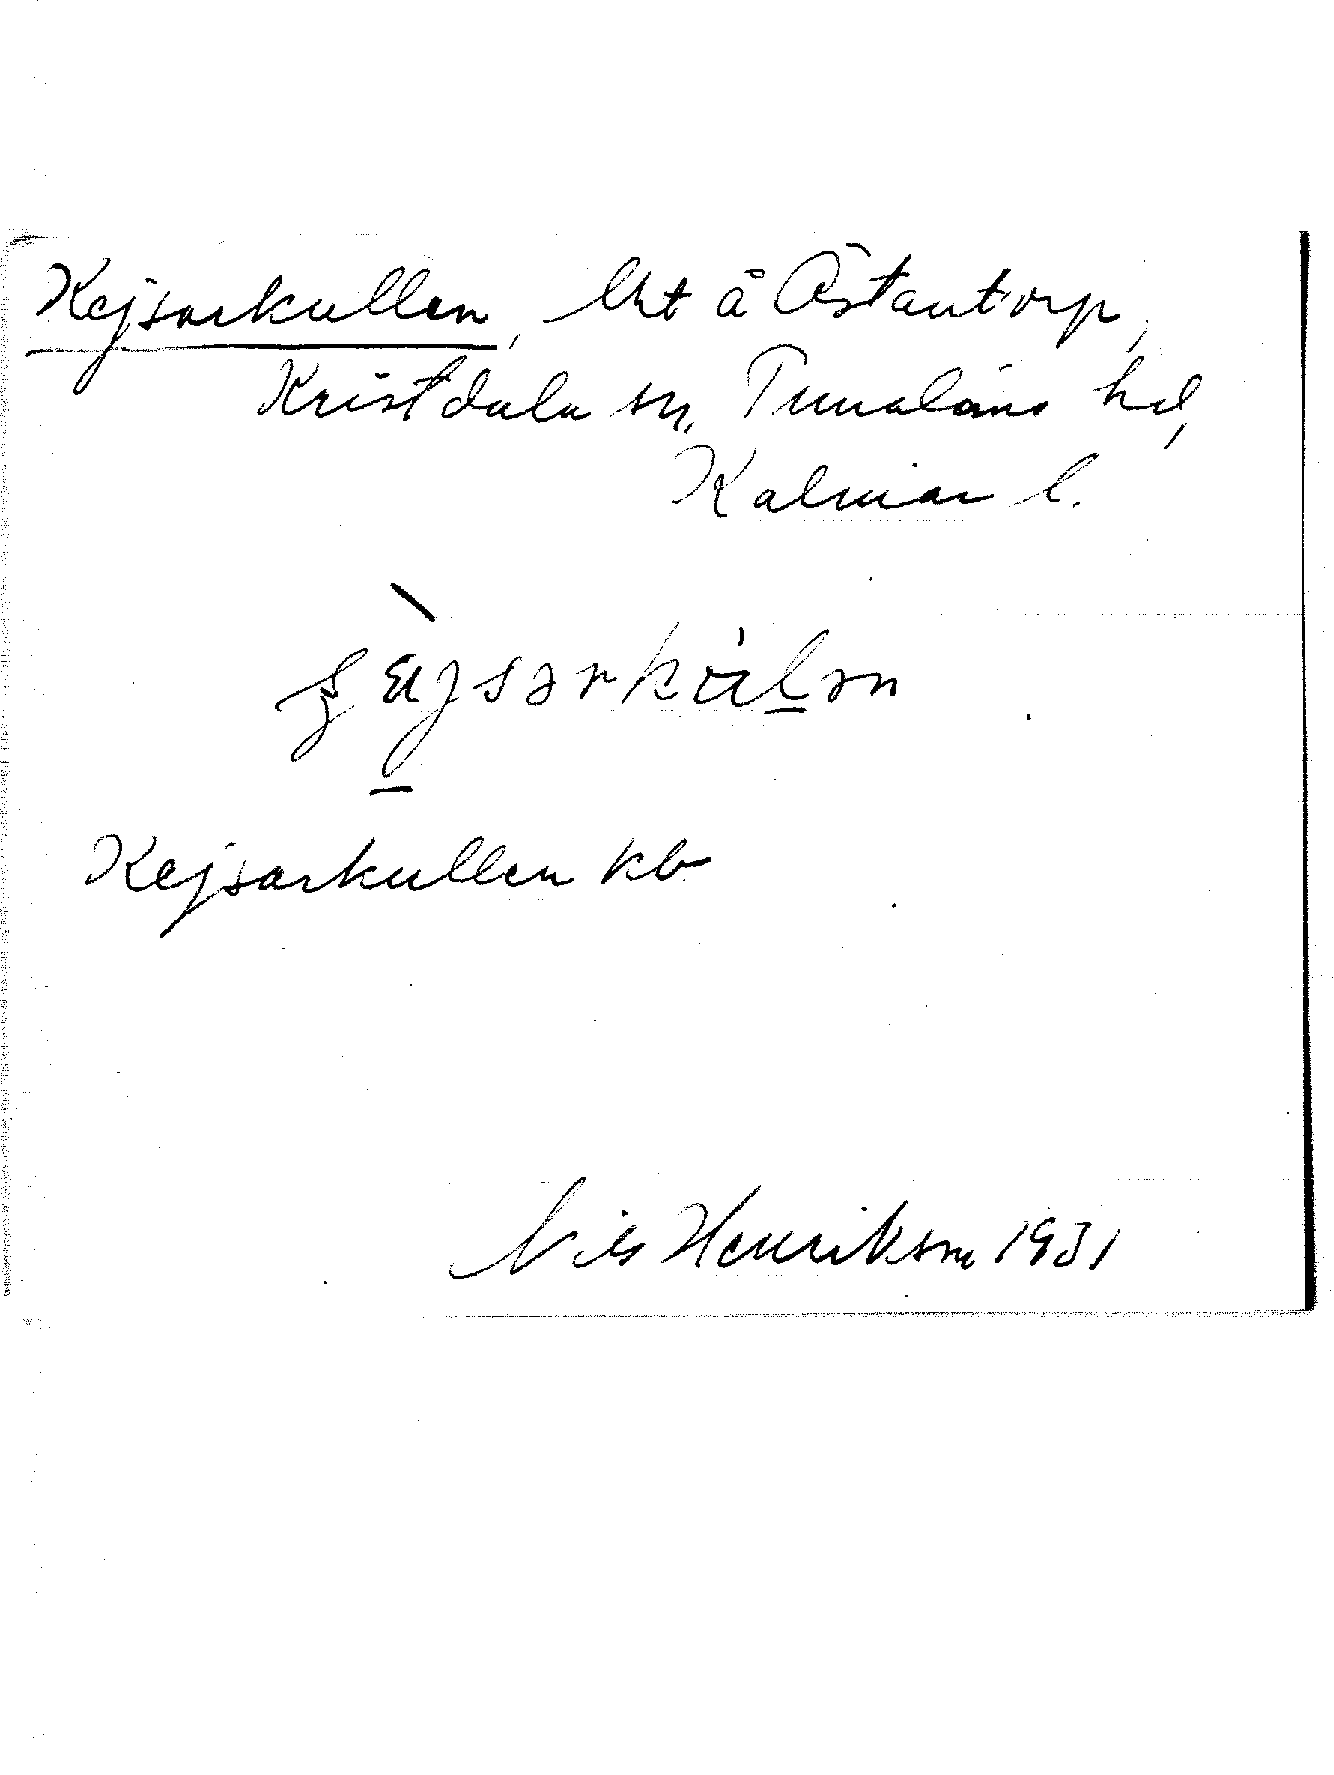 Kejsarkullen, lht å Östantorp,
Kristdala sn, Tunaläns hd,
Kalmar l.
Kejsarkullen kb
Nils Henrikson 1931